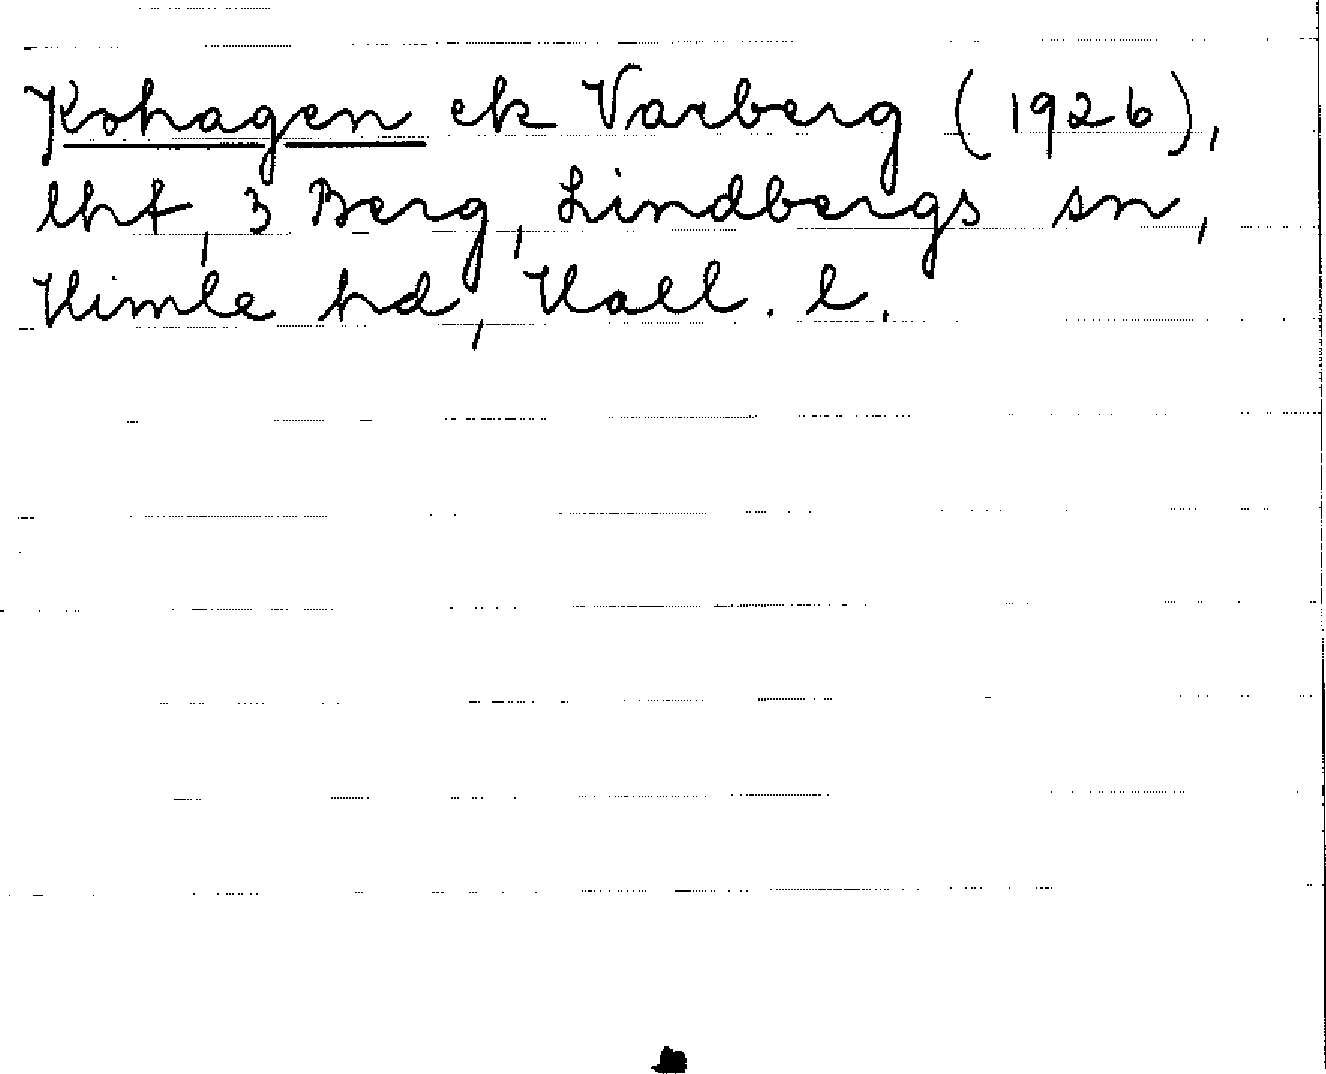 Kohagen ek Varberg (1926),
lht, 3 Berg, Lindbergs sn,
Himle hd, Hall. l.